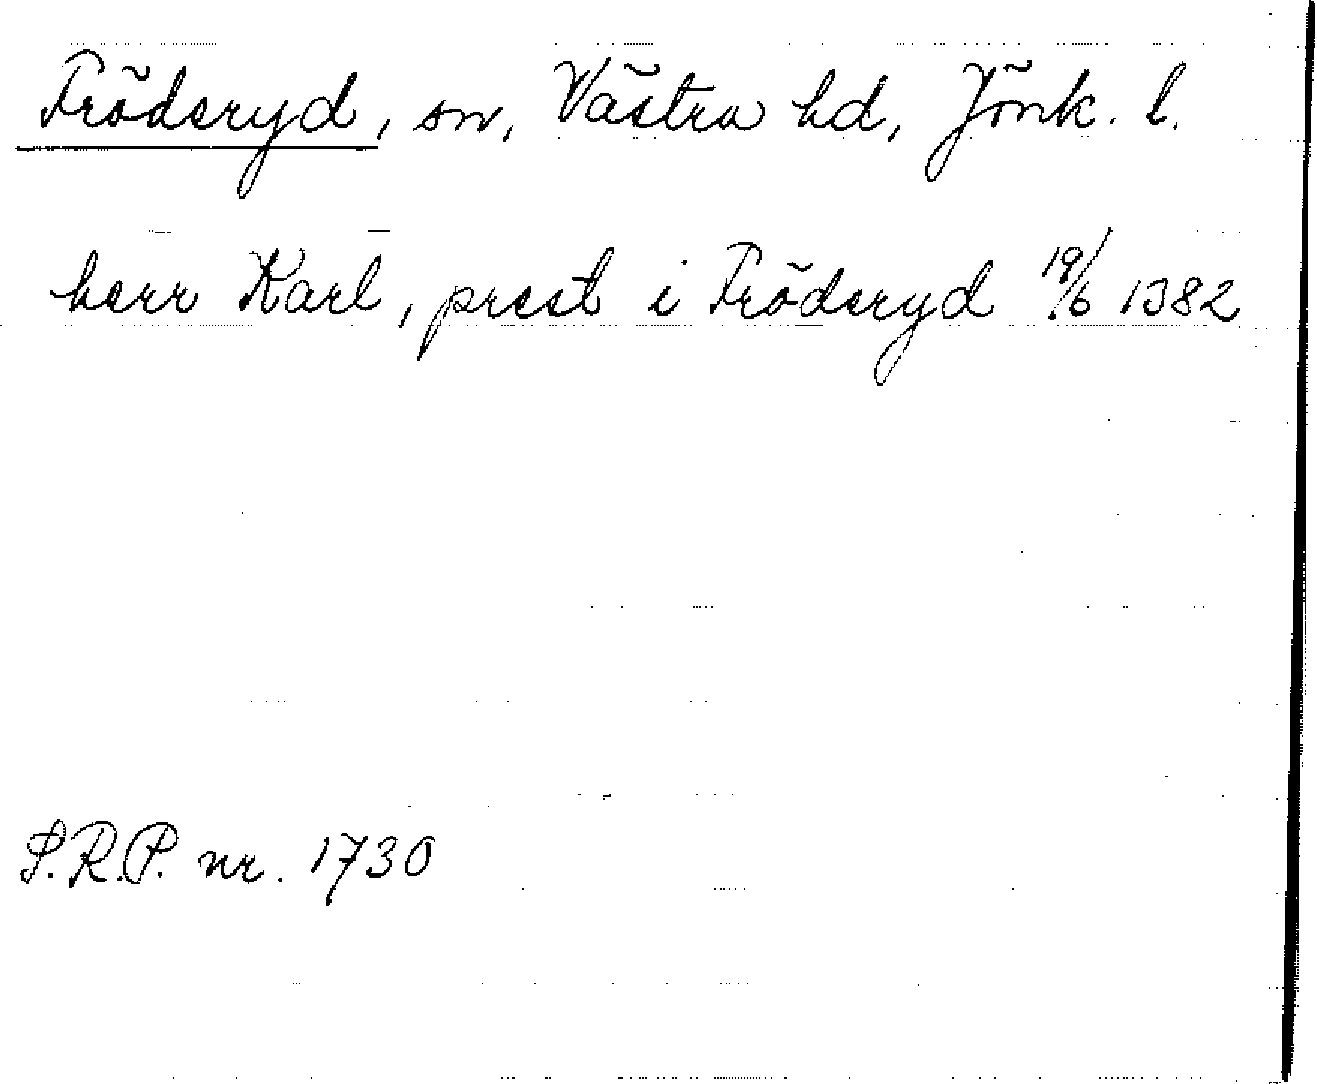 Fröderyd, sn, Västra hd, Jönk. l.
herr Karl, prest i Fröderyd 19/6 1382
S.R.P. nr. 1730